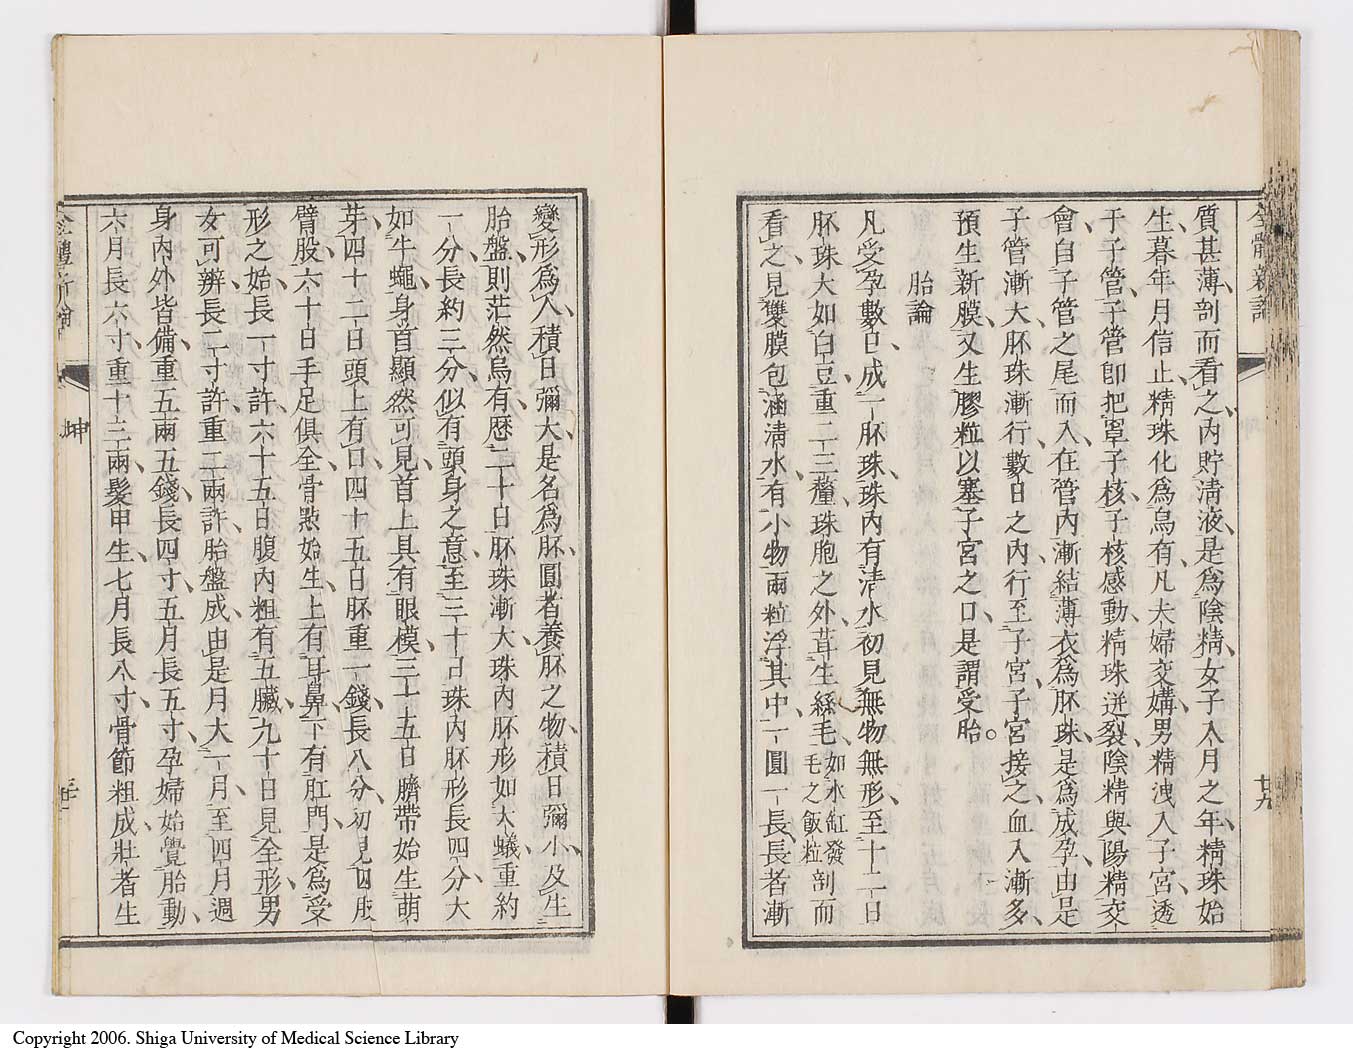 全體新論
廿九
質甚薄剖而看之內貯淸液是為陰精女子入月之年精珠始
生暮年月信止精珠化為烏有凡夫婦交媾男精洩入子宮透
于子管子管卽把罩子核子核感動精珠迸裂陰精與陽精交
會自子管之尾而入在管內漸結薄衣為胚珠是為成孕由是
子管漸大胚珠漸行數日之內行至子宮子宮接之血入漸多
預生新膜又生膠粒以塞子宮之口是謂受胎。
胎論
凡受孕數日成一胚珠珠內有淸水初見無物無形至十一日
胚珠大如白豆重二三釐珠胞之外茸生絲毛如水缸發毛之飯粒剖而
看之見雙膜包涵淸水有小物兩粒浮其中一圓一長長者漸
變形為人積日彌大是名為胚圓者養胚之物積日彌小及生
胎盤則茫然烏有歷二十日胚珠漸大珠內胚形如大蟻重約
一分長約三分似有頭身之意至三十日珠內胚形長四分大
如牛蠅身首顯然可見首上具有眼模三十五日臍帶始生萌
芽四十二日頭上有口四十五日胚重一錢長八分初見四肢
臂股六十日手足俱全骨點始生上有耳鼻下有肛門是為受
形之始長一寸許六十五日腹內粗有五臟九十日見全形男
女可辨長二寸許重二兩許胎盤成由是月大一月至四月週
身內外皆備重五兩五錢長四寸五月長五寸孕婦始覺胎動
六月長六寸重十三兩髮甲生七月長八寸骨節粗成壯者生
全體新論
坤
Copyright 2006. Shiga University of Medical Science Library